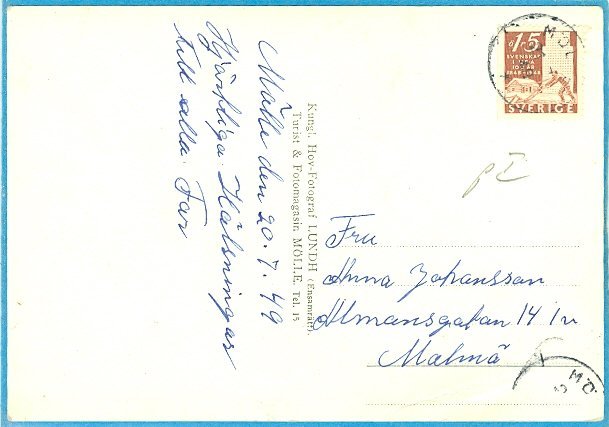 Mölle den 20.7.49
Hjärtliga Hälsningar
till alla. Far
Kungl. Hov-Fotograf LUNDH (Ensamrätt).
Turist & Fotomagasin MÖLLE. Tel. 15
15
SVENSKAR
1848-1948
SVERIGE
MÖL
Fru
Anna Johansson
Almansgatan 14 1 v
Malmö
MÖ